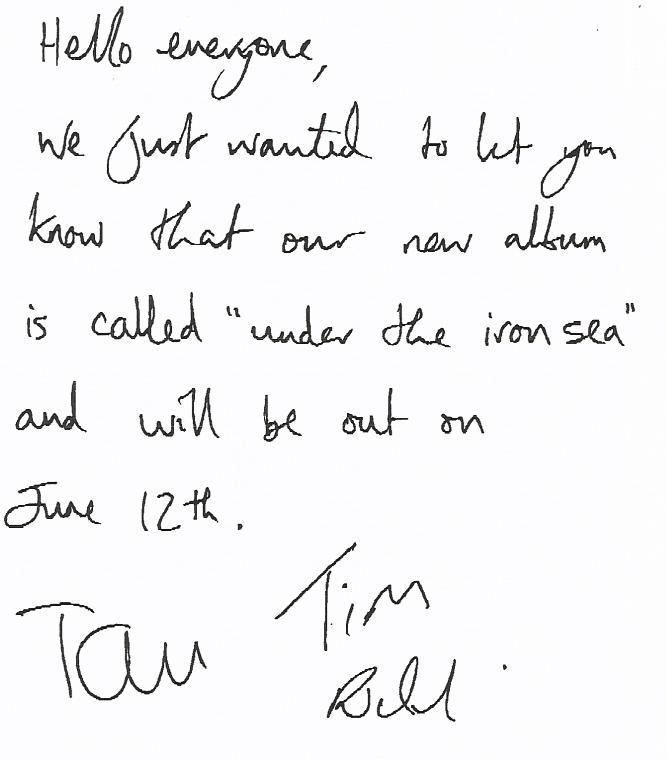 Hello everyone,
we just wanted to let you
know that our new album
is called "under the iron sea"
and will be out on
June 12th.
Tim
Tom